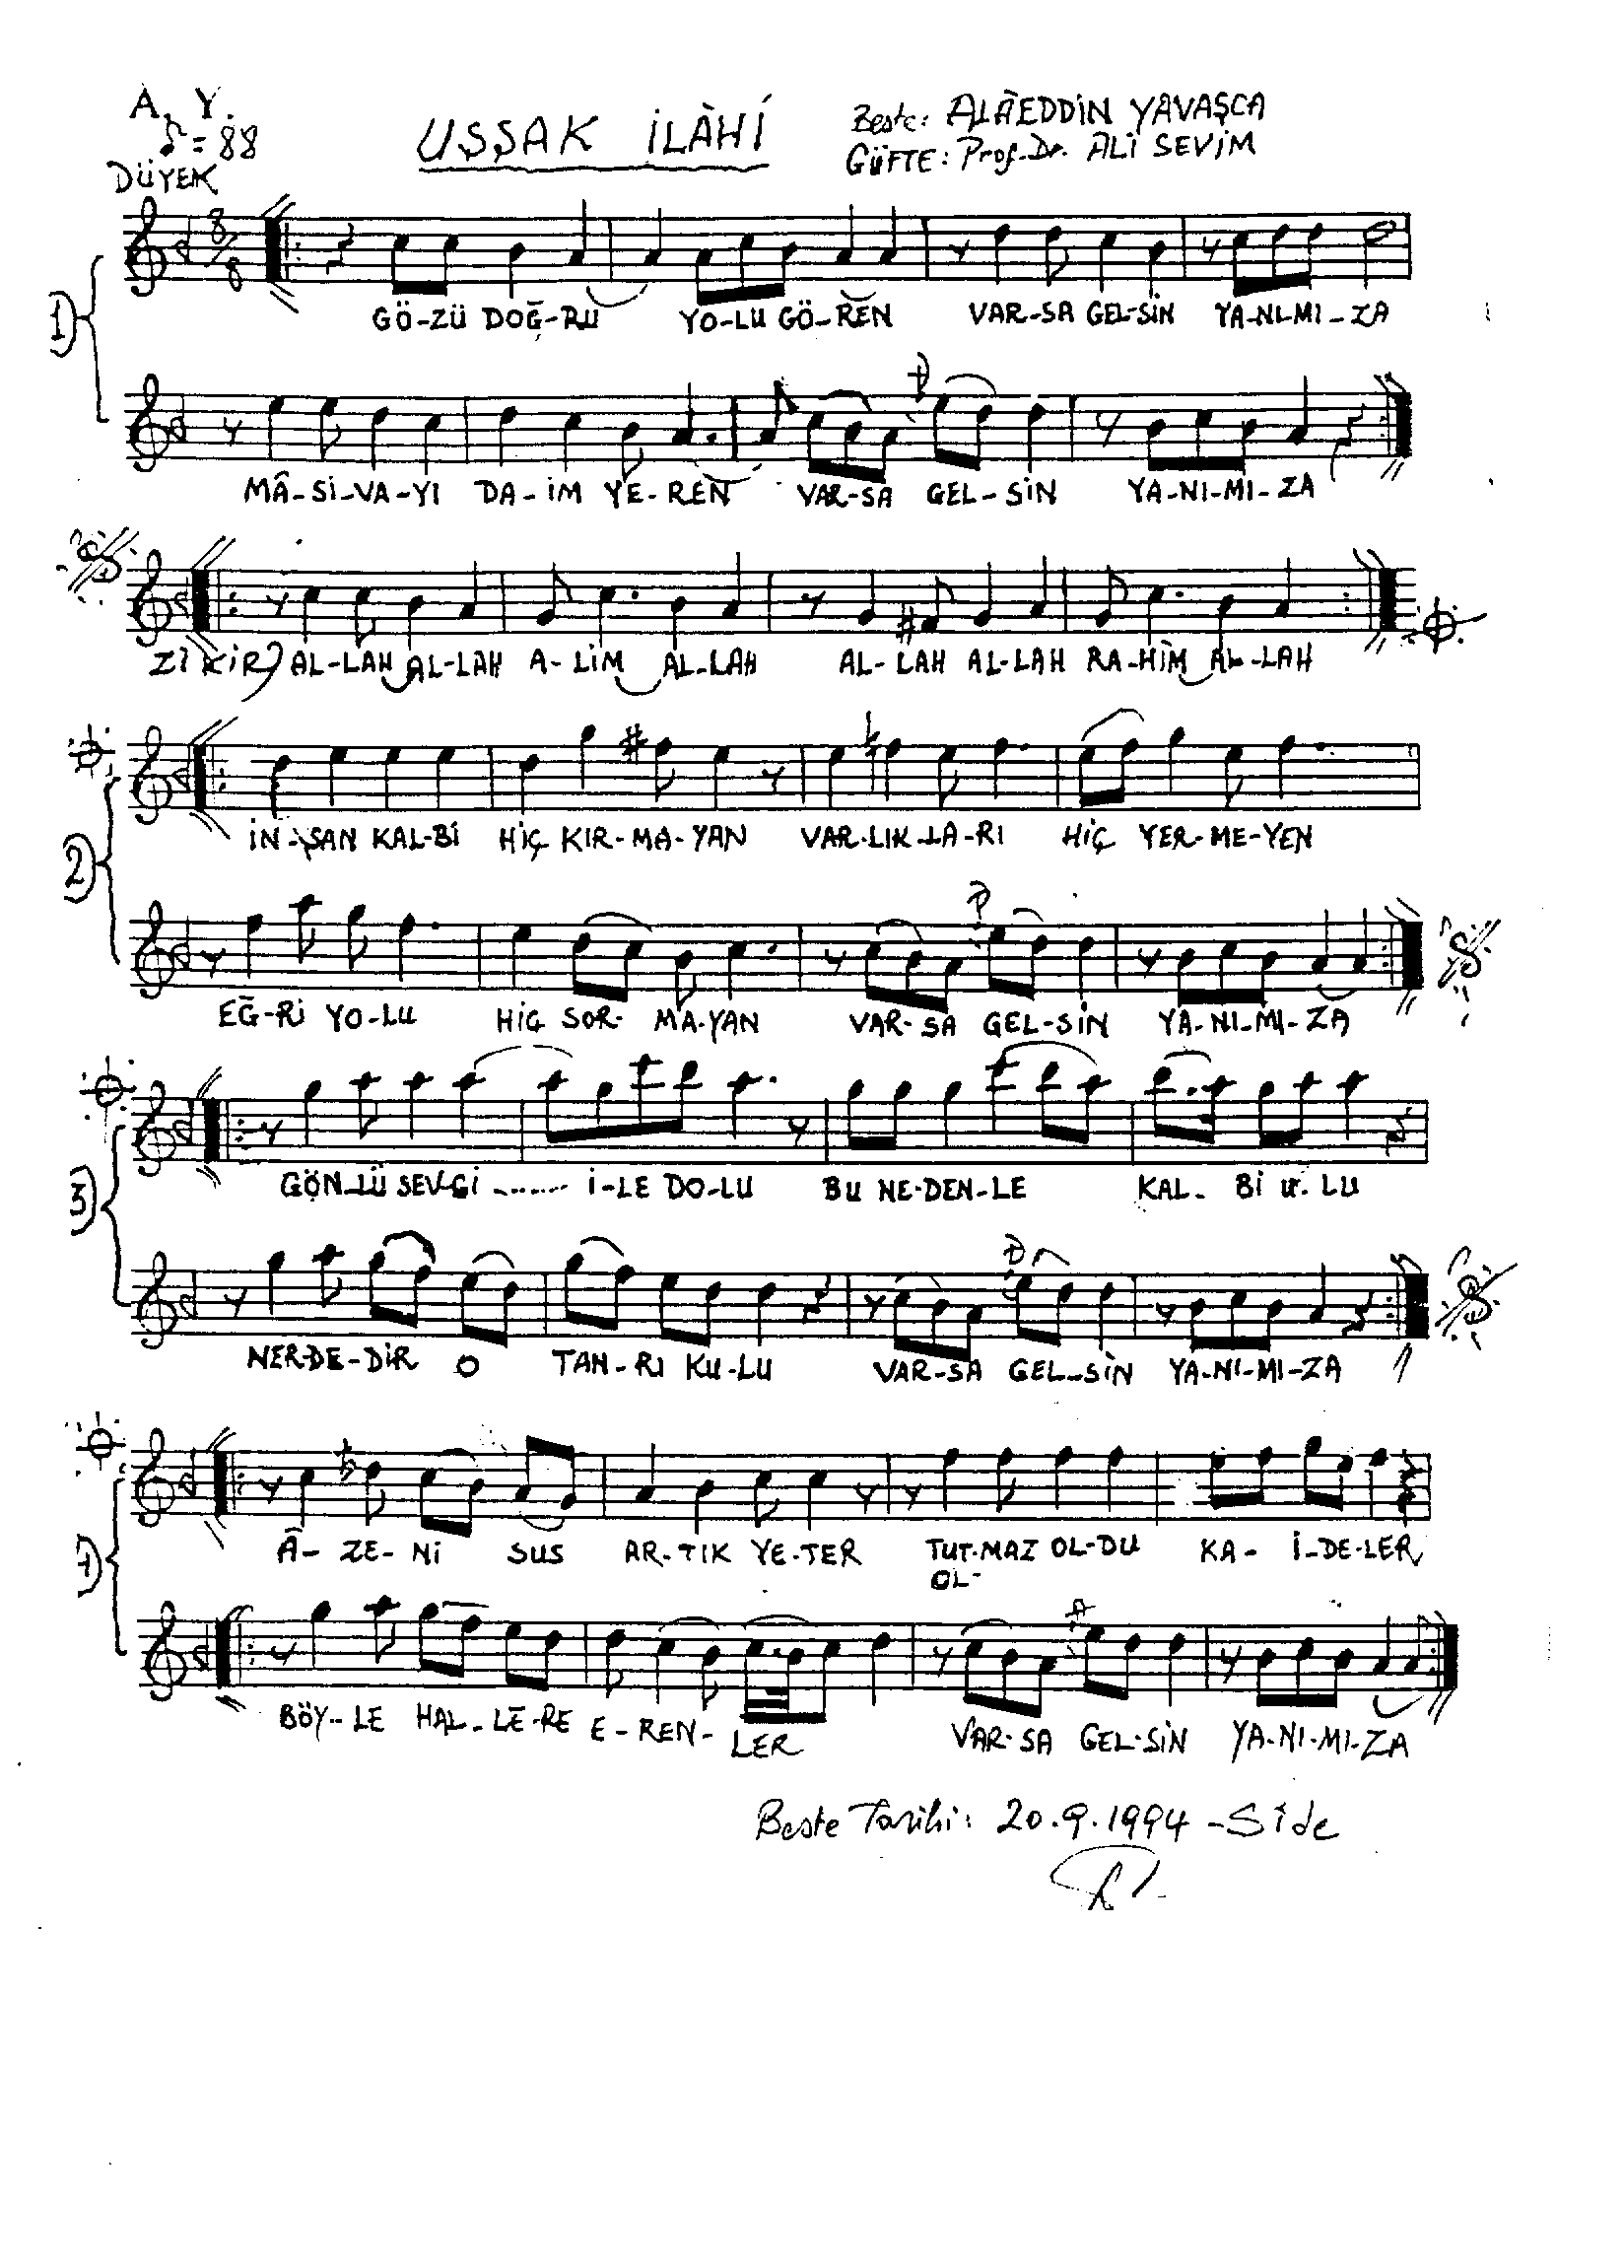 A. Y.
♪ = 88
DÜYEK
UŞŞAK İLÂHİ
Beste: ALÂEDDİN YAVAŞCA
GÜFTE: Prof. Dr. ALİ SEVİM
8/8
1)
GÖ-ZÜ DOĞ-RU YO-LU GÖ-REN VAR-SA GEL-SİN YA-NI-MI-ZA
MÂ-Sİ-VA-YI DA-İM YE-REN VAR-SA GEL-SİN YA-NI-MI-ZA
ZİKİR) AL-LAH AL-LAH A-LİM AL-LAH AL-LAH AL-LAH RA-HİM AL-LAH
2)
İN-SAN KAL-Bİ HİÇ KIR-MA-YAN VAR-LIK-LA-RI HİÇ YER-ME-YEN
EĞ-Rİ YO-LU HİÇ SOR-MA-YAN VAR-SA GEL-SİN YA-NI-MI-ZA
3)
GÖN-LÜ SEV-Gİ ........ İ-LE DO-LU BU NE-DEN-LE KAL-Bİ U-LU
NER-DE-DİR O TAN-RI KU-LU VAR-SA GEL-SİN YA-NI-MI-ZA
Â-ZE-Nİ SUS AR-TIK YE-TER TUT-MAZ OL-DU KA-İ-DE-LER
OL-
BÖY-LE HAL-LE-RE E-REN-LER VAR-SA GEL-SİN YA-NI-MI-ZA
Beste Tarihi: 20.9.1994 - Side